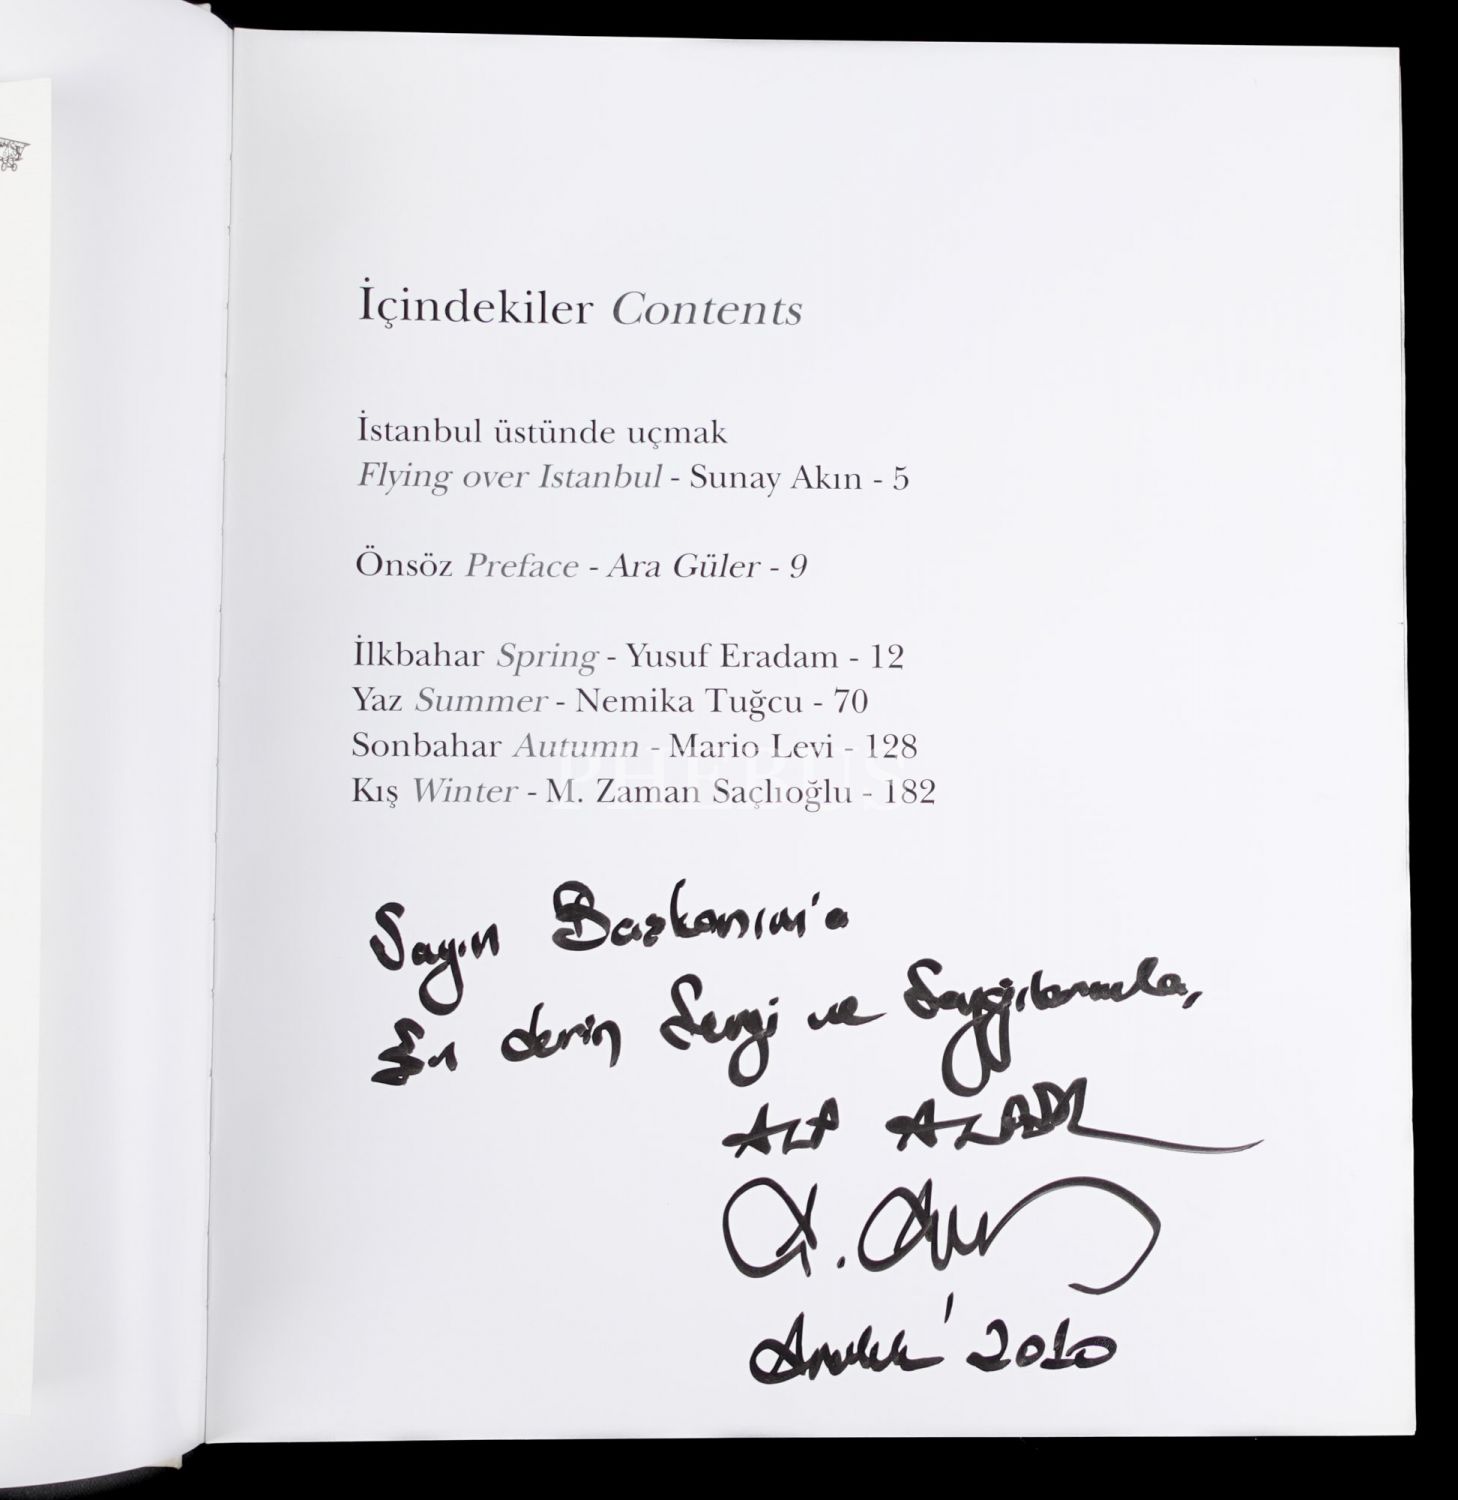 İçindekiler Contents
İstanbul üstünde uçmak
Flying over Istanbul - Sunay Akın - 5
Önsöz Preface - Ara Güler - 9
İlkbahar Spring - Yusuf Eradam - 12
Yaz Summer - Nemika Tuğcu - 70
Sonbahar Autumn - Mario Levi - 128
Kış Winter - M. Zaman Saçlıoğlu - 182
PHEBUS
Sayın Başkanım'a
En derin Sevgi ve Saygılarımla,
ALP ALADI
Aralık' 2010